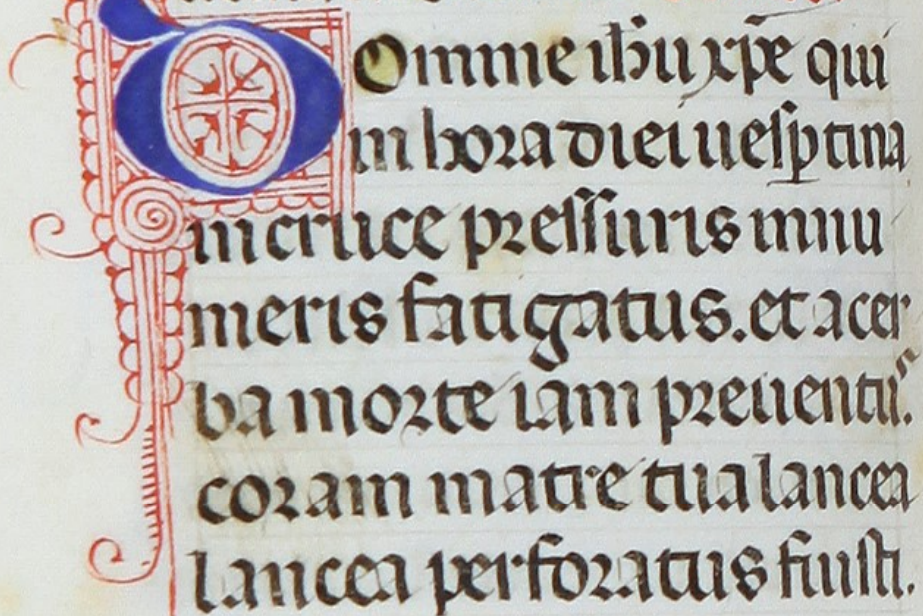 DOmine ihu xpe qui
in hora diei uesptina
in cruce pressuris innu
meris fatigatus. et acer
ba morte iam preuentus.
coram matre tua lancea
lancea perforatus fuisti.